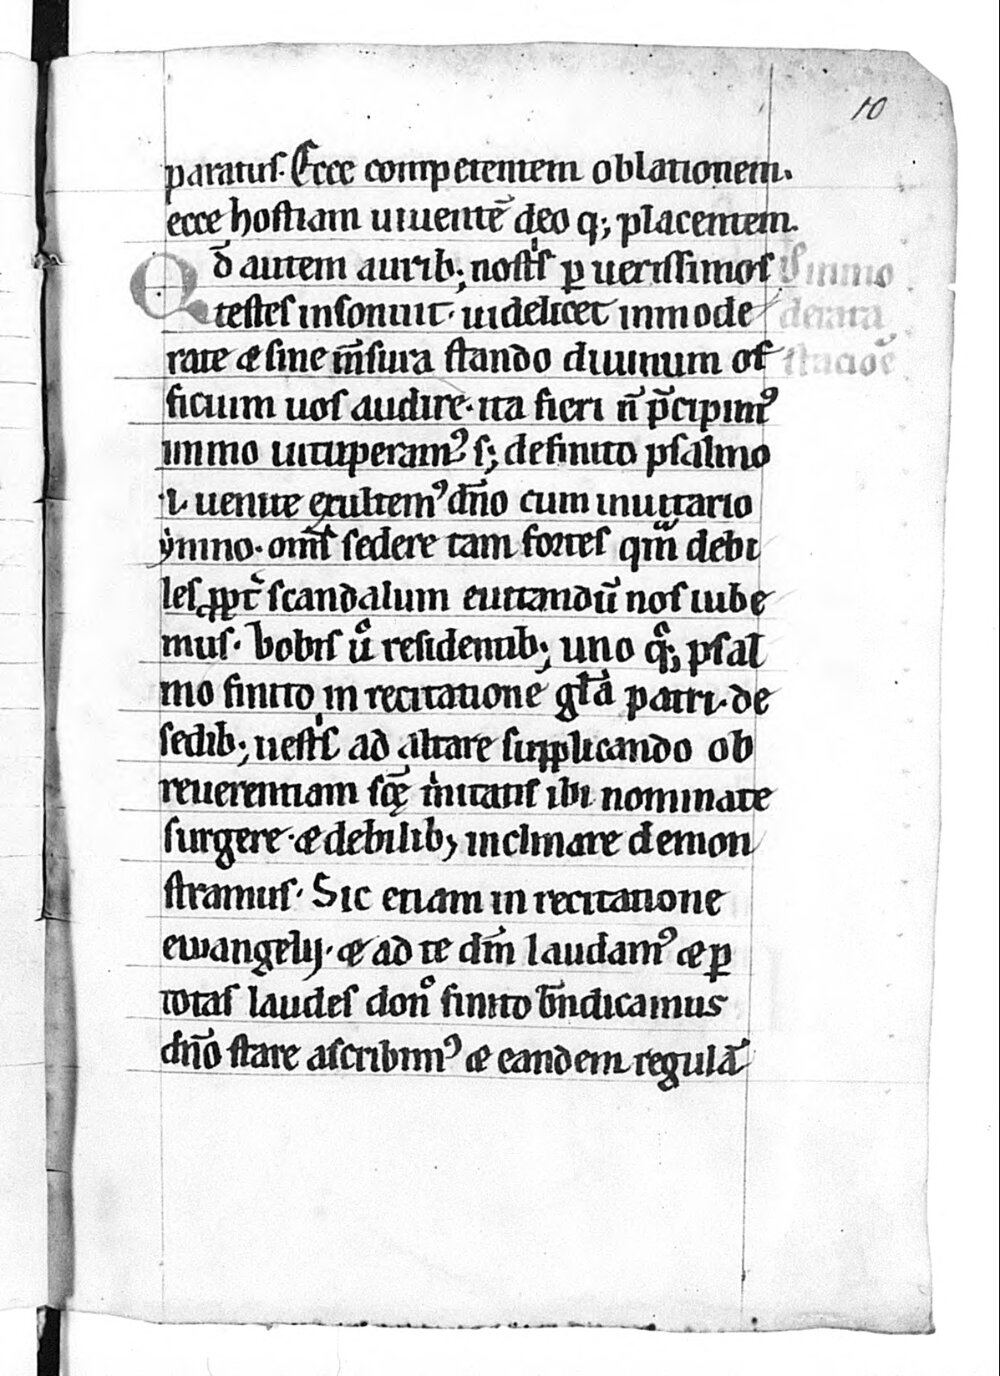 10
paratuſ. Ecce competentem oblationem.
ecce hoſtiam uiuentē deo q; placentem.
Qđ autem aurib; noſtͥſ ꝑ ueriſſimoſ
teſteſ inſonuit· uidelicet inmode
rate & ſine m̄ſura ſtando diuinum of
ficium uoſ audire· ita fieri n̄ p̄cipimꝰ
immo uituperamꝰ ſ; definito pſalmo
.i. uenite exultemꝰ dn̄o cum inuitario
ẏmno· om̄ſ ſedere tam forteſ qͣm debi
leſ ꝓpt̄ ſcandalum euitandū noſ iube
mus· Vobiſ uͦ reſidentib; uno qͦq; pſal
mo finito in recitatione gl̄a patri· de
ſedib; ueſtͥſ ad altare ſupplicando ob
reuerentiam ſcę̄ tͥnitatiſ ibi nominate
ſurgere· & debilib; inclinare demon
ſtramuſ· Sic etiam in recitatione
ewangelij· & ad te dm̄ laudamꝰ & ꝑ
totaſ laudeſ donͦ finito bn̄dicamus
dn̄o ſtare aſcribimꝰ & eandem regulā
inmo
derata
ſtacioē